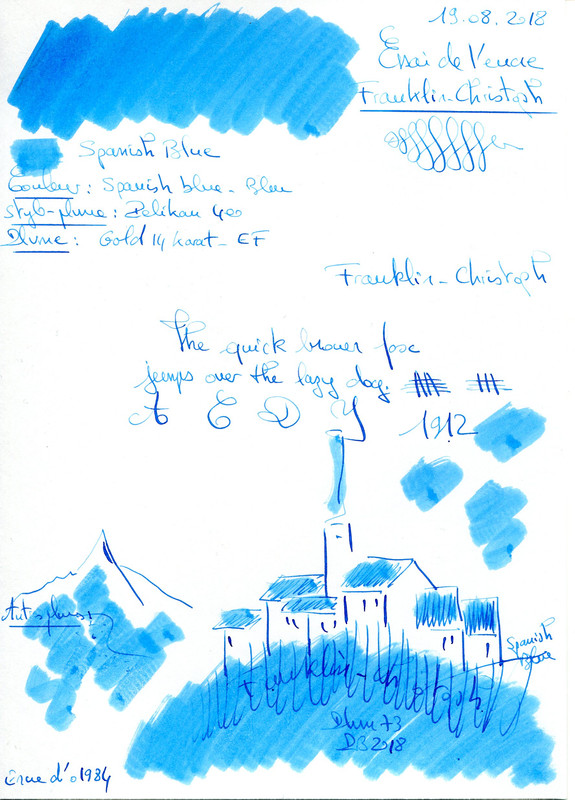 19.08.2018
Essai de l'encre
Franklin-Christoph
Spanish Blue
Couleur: Spanish blue - Bleu
Stylo-plume: Pelikan 400
Plume: Gold 14 karat - EF
Franklin-Christoph
The quick brown fox
jumps over the lazy dog.
A E D Y
1912
Spanish
Blue
Franklin-Christoph
73
DB 2018
d'o 1984